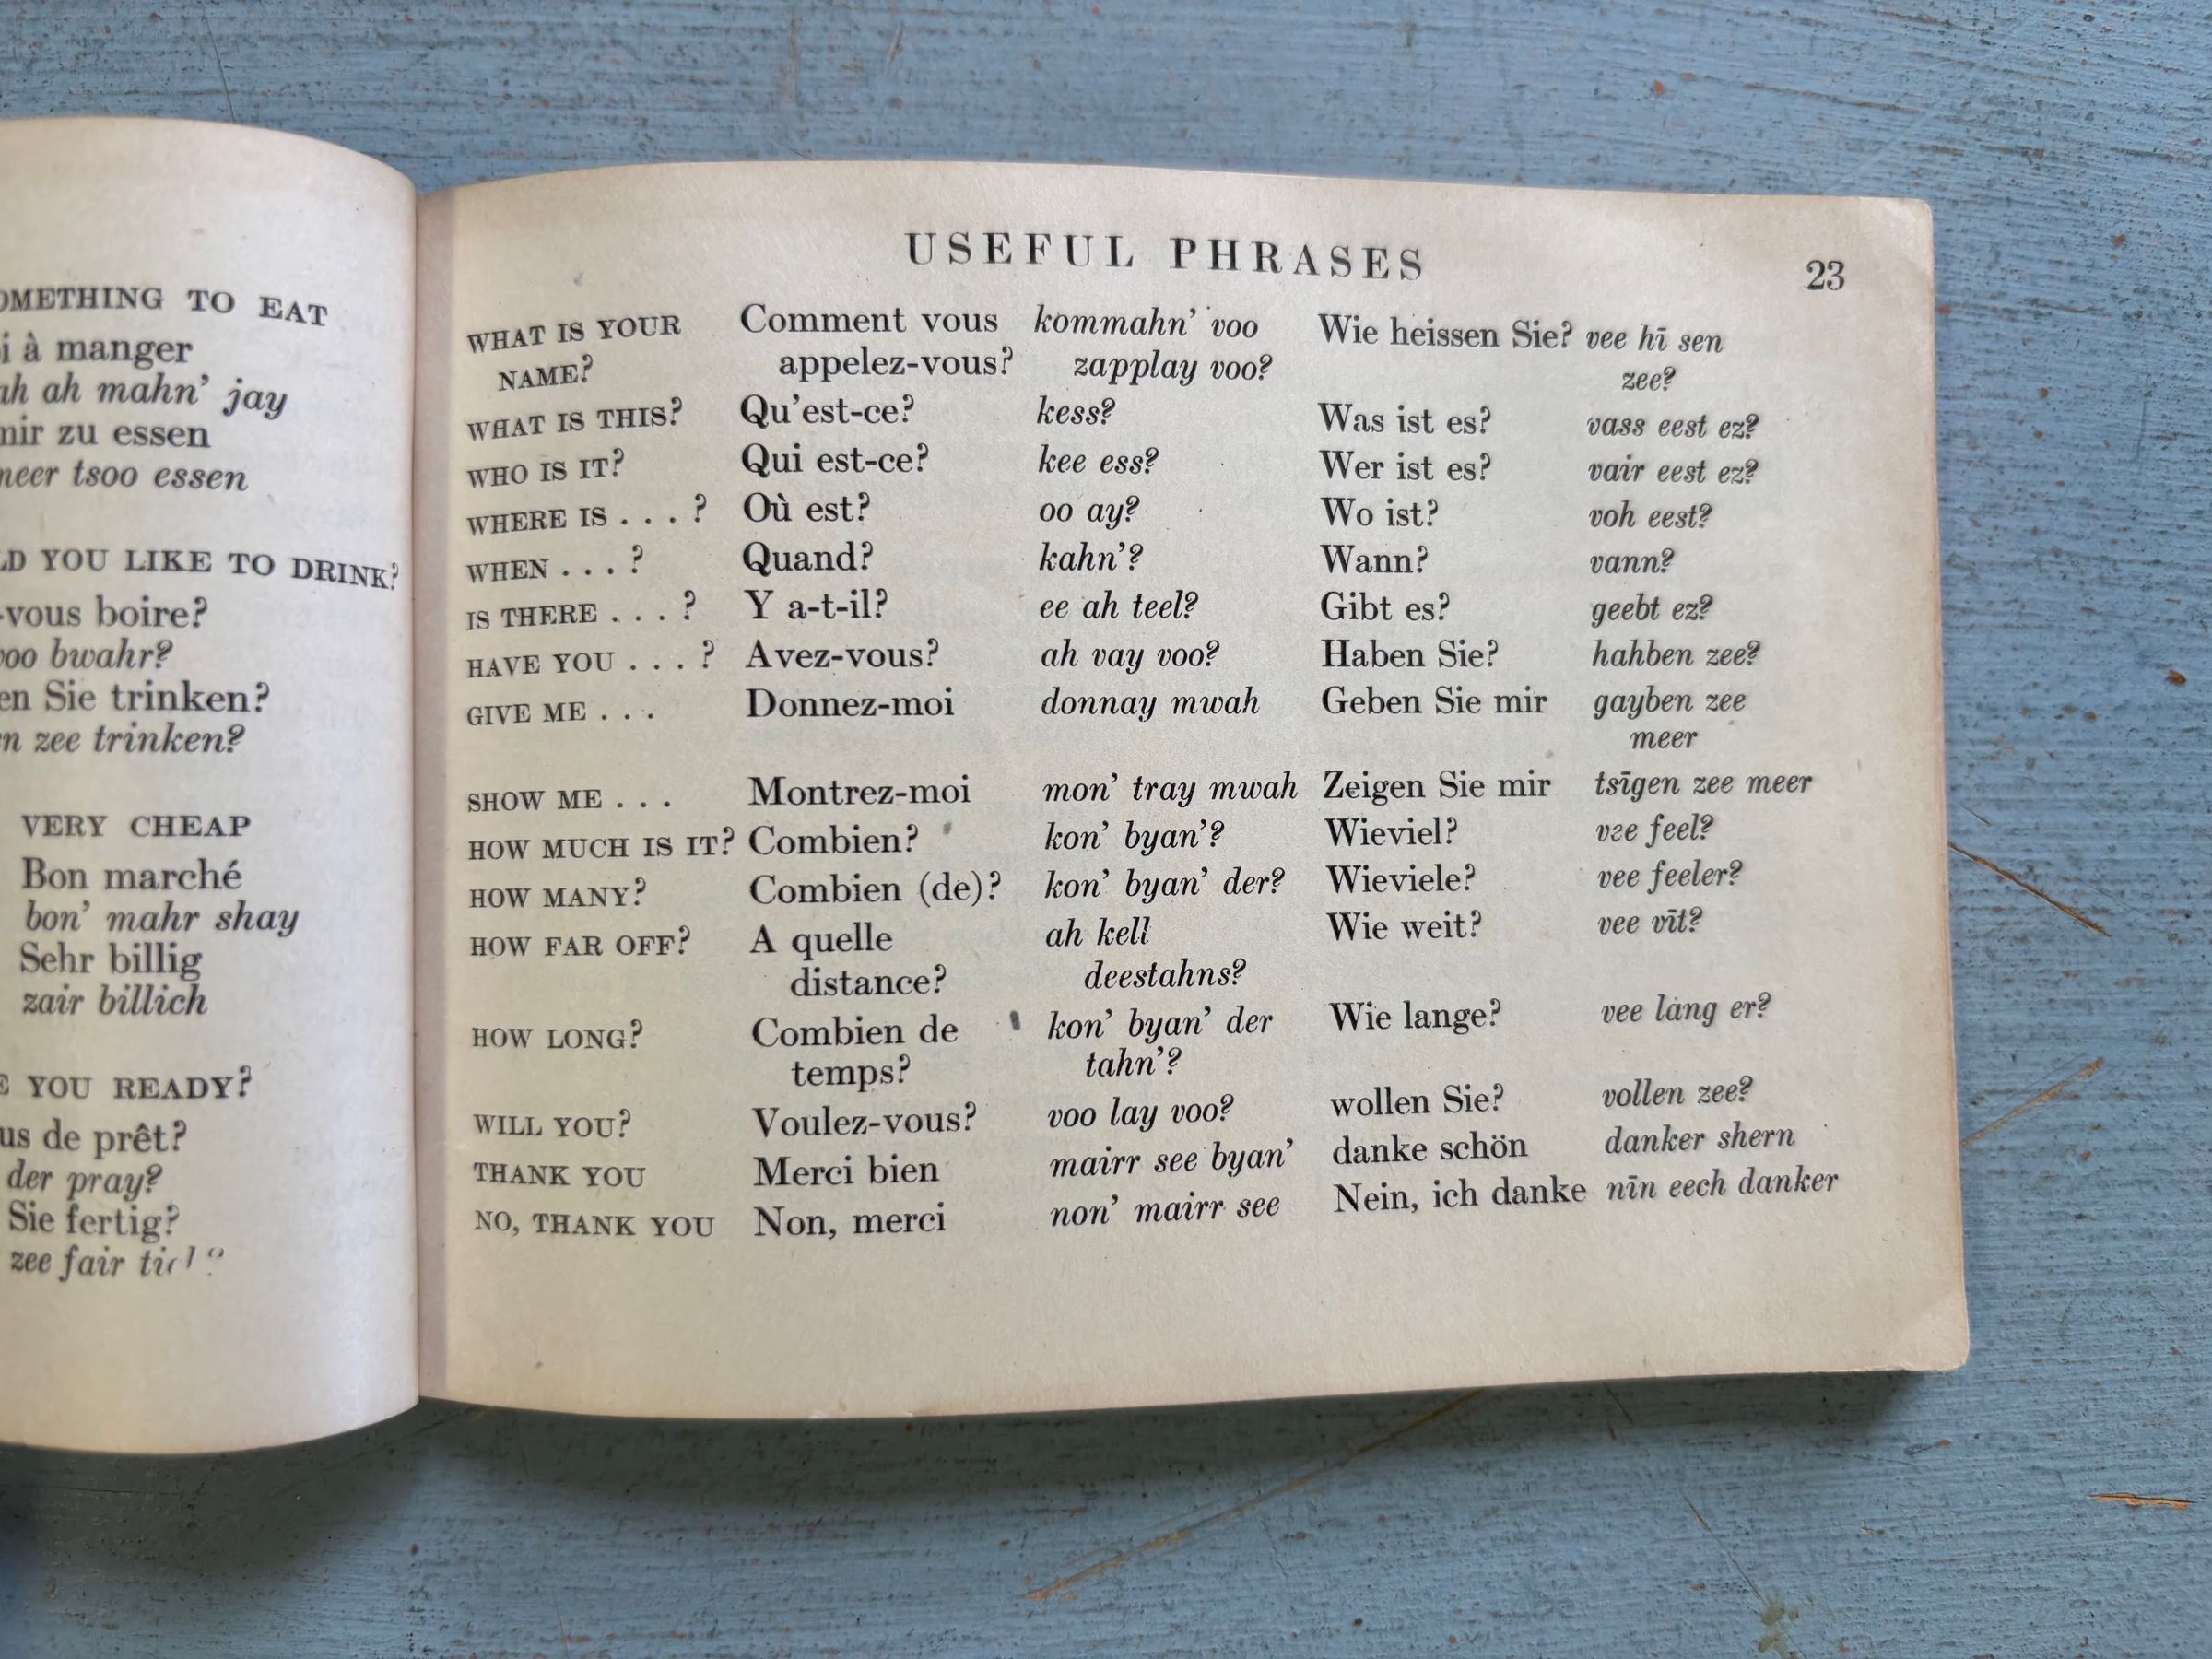 SOMETHING TO EAT
i à manger
ah ah mahn’ jay
mir zu essen
meer tsoo essen
YOU LIKE TO DRINK?
-vous boire?
voo bwahr?
en Sie trinken?
zee trinken?
VERY CHEAP
Bon marché
bon’ mahr shay
Sehr billig
zair billich
YOU READY?
us de prêt?
der pray?
Sie fertig?
zee fair
USEFUL PHRASES
23
WHAT IS YOUR Comment vous kommahn’ voo Wie heissen Sie? vee hī sen
NAME? appelez-vous? zapplay voo? zee?
WHAT IS THIS? Qu’est-ce? kess? Was ist es? vass eest ez?
WHO IS IT? Qui est-ce? kee ess? Wer ist es? vair eest ez?
WHERE IS . . . ? Où est? oo ay? Wo ist? voh eest?
WHEN . . . ? Quand? kahn’? Wann? vann?
IS THERE . . . ? Y a-t-il? ee ah teel? Gibt es? geebt ez?
HAVE YOU . . . ? Avez-vous? ah vay voo? Haben Sie? hahben zee?
GIVE ME . . . Donnez-moi donnay mwah Geben Sie mir gayben zee
meer
SHOW ME . . . Montrez-moi mon’ tray mwah Zeigen Sie mir tsīgen zee meer
HOW MUCH IS IT? Combien? kon’ byan’? Wieviel? vee feel?
HOW MANY? Combien (de)? kon’ byan’ der? Wieviele? vee feeler?
HOW FAR OFF? A quelle ah kell Wie weit? vee vīt?
distance? deestahns?
HOW LONG? Combien de kon’ byan’ der Wie lange? vee lang er?
temps? tahn’?
WILL YOU? Voulez-vous? voo lay voo? wollen Sie? vollen zee?
THANK YOU Merci bien mairr see byan’ danke schön danker shern
NO, THANK YOU Non, merci non’ mairr see Nein, ich danke nīn eech danker